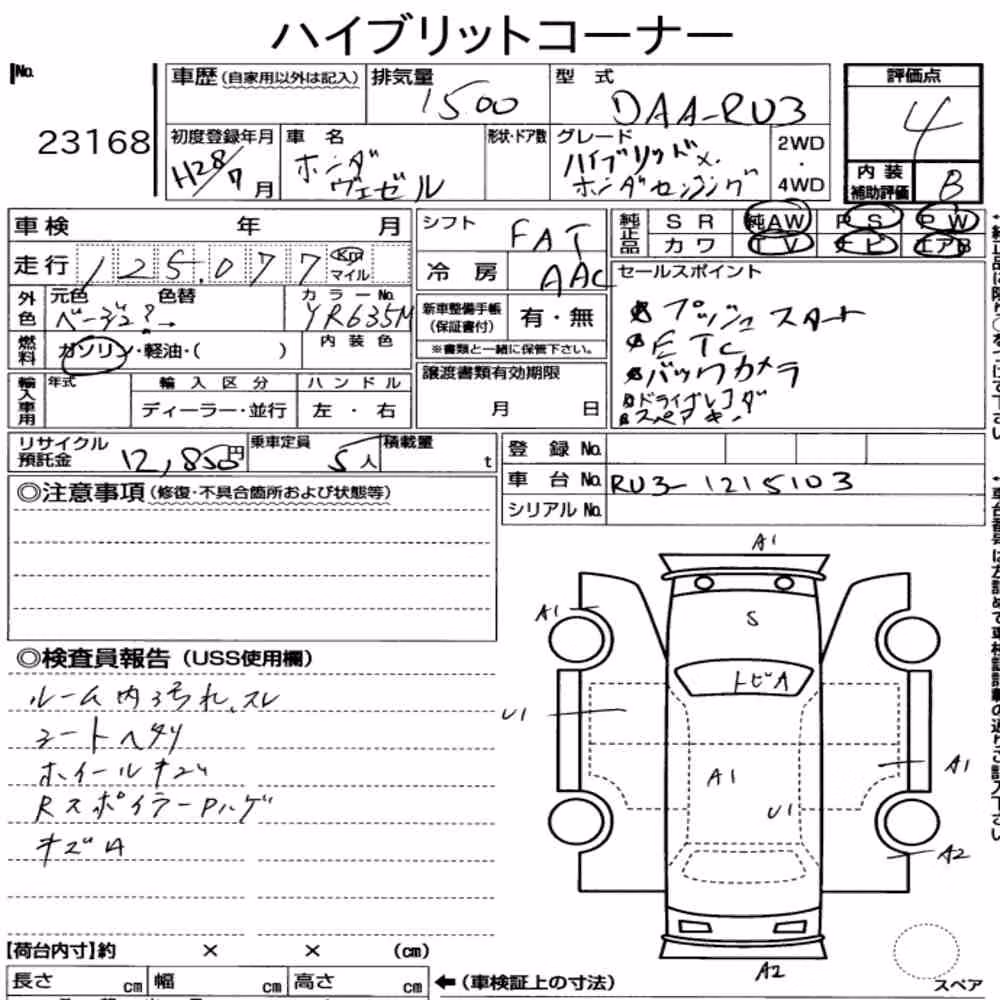 ハイブリットコーナー
No.
23168
車歴 (自家用以外は記入)
排気量
1500
型式
DAA-RU3
評価点
4
初度登録年月
H28/7月
車名
ホンダ
ヴェゼル
形状・ドア数
グレード
ハイブリッドX.
ホンダセンシング
2WD
・
4WD
内装
補助評価
B
車検 年 月
シフト
FAT
純正品
SR 純AW PS PW
カワ TV ナビ エアB
走行
125,077
Km
マイル
冷房
AAC
セールスポイント
プッシュスタート
ETC
バックカメラ
ドライブレコーダ
スペアキー
外色
元色
ベージュ
色替
カラーNo.
YR635M
新車整備手帳
(保証書付)
有・無
※書類と一緒に保管下さい。
燃料
ガソリン・軽油・( )
内装色
譲渡書類有効期限
月 日
輸入車用
年式
輸入区分
ディーラー・並行
ハンドル
左・右
リサイクル
預託金
12,850円
乗車定員
5人
積載量
t
登録No.
車台No.
RU3-1215103
シリアルNo.
◎注意事項(修復・不具合箇所および状態等)
◎検査員報告(USS使用欄)
ルーム内汚れ、スレ
シートヘタリ
ホイールキズ
RスポイラーPハゲ
キズA
A1
A1
S
トビA
U1
A1
A1
U1
A2
A2
スペア
【荷台内寸】約 × × (cm)
長さ cm 幅 cm 高さ cm
←(車検証上の寸法)